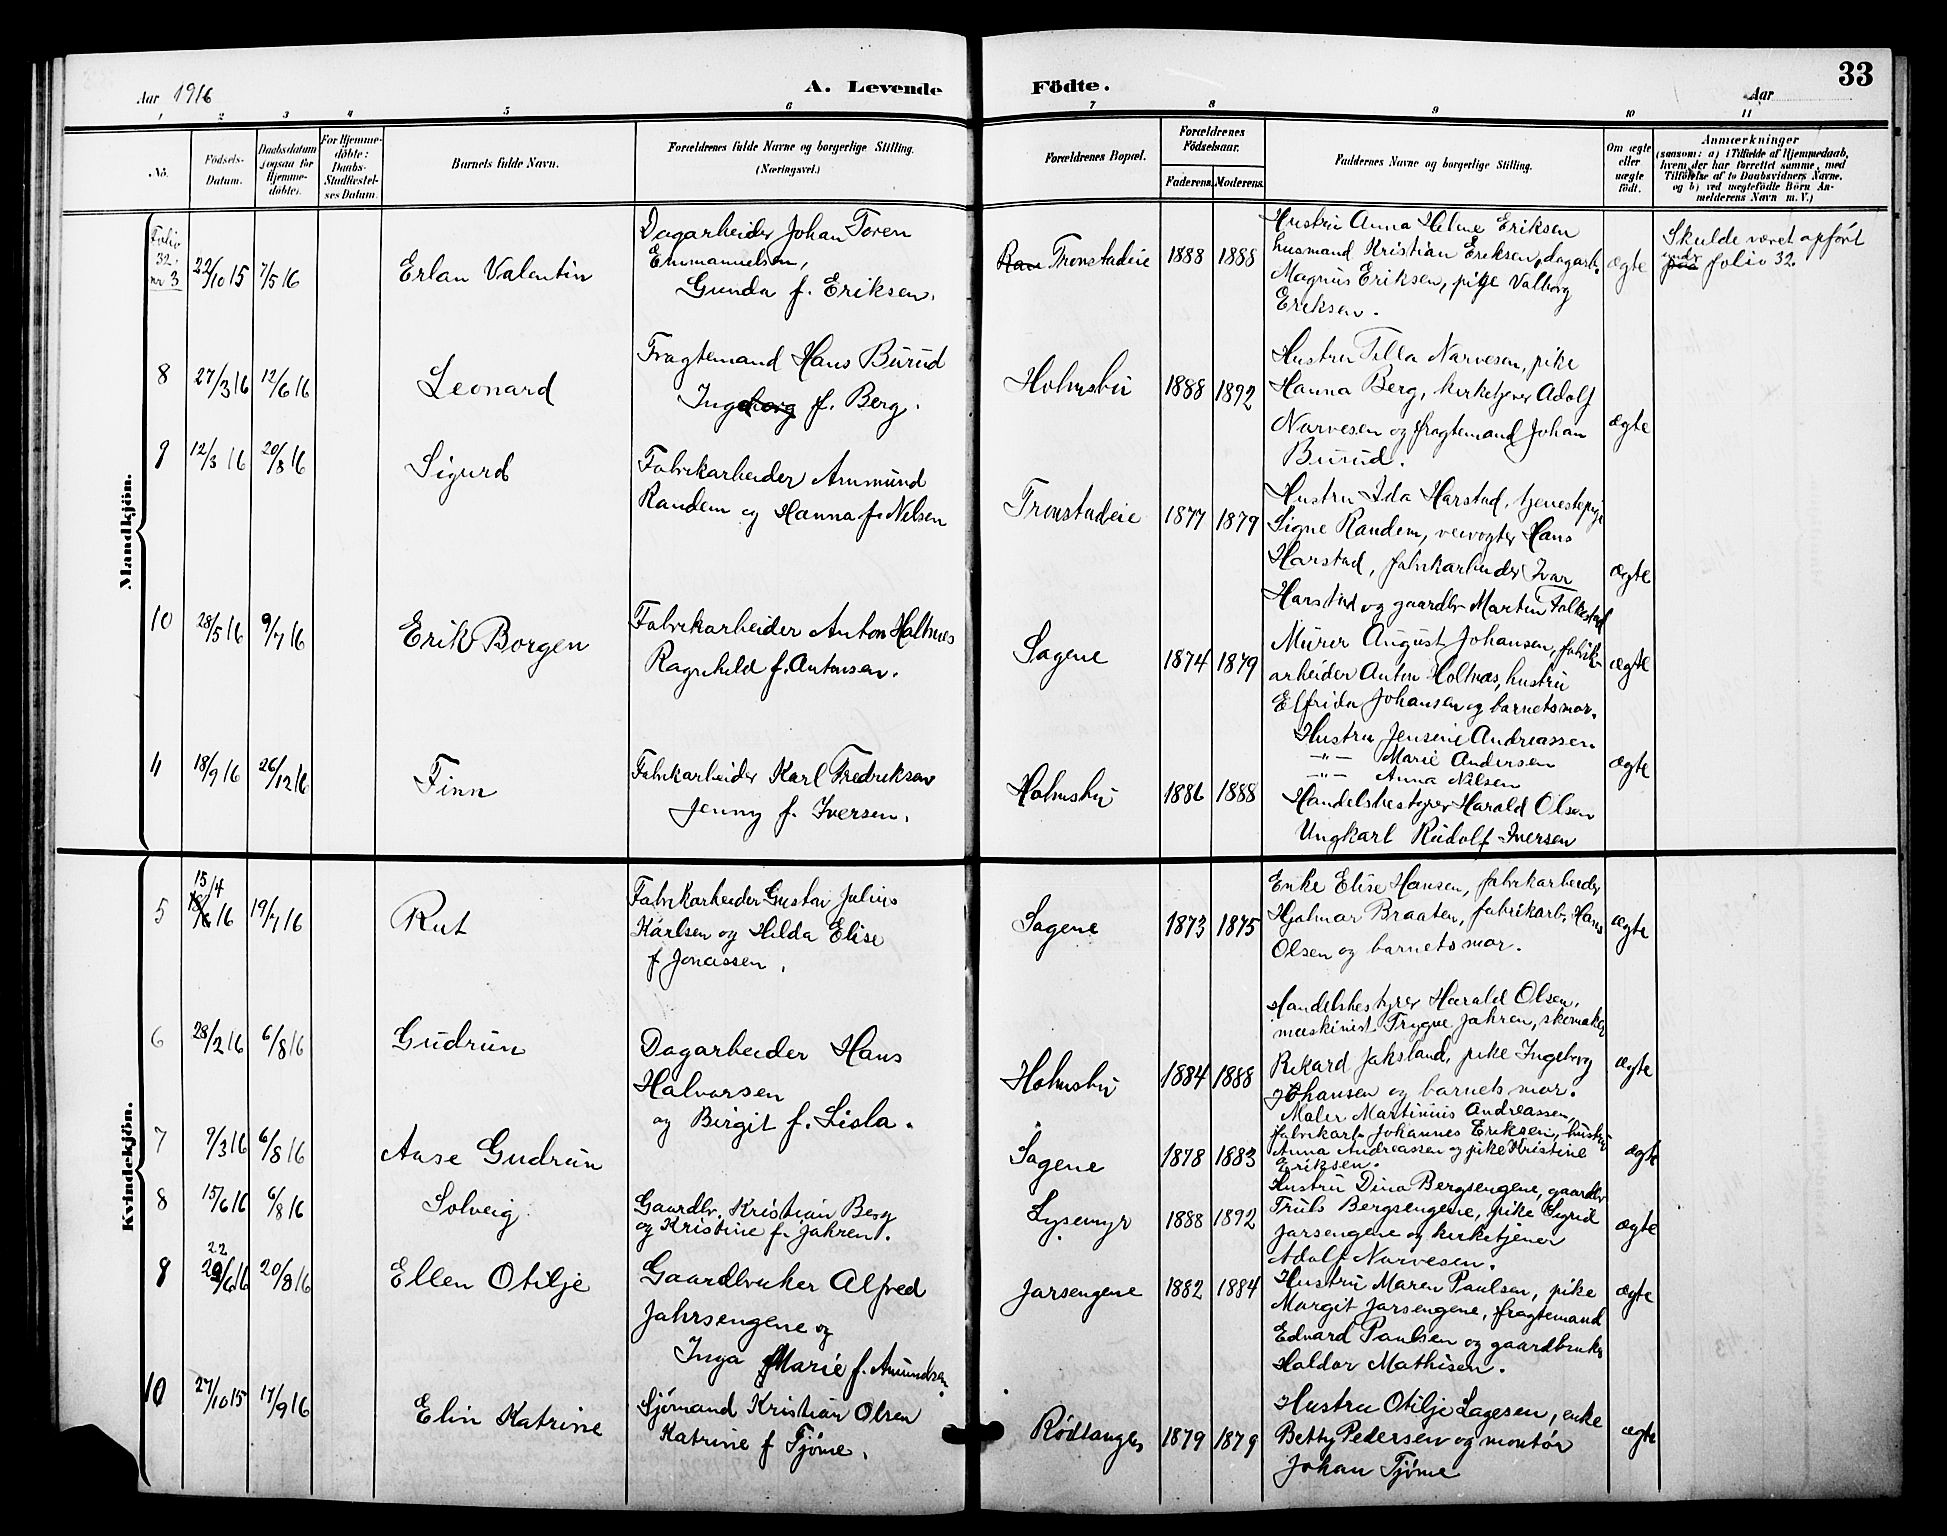 33
Aar 1916 A. Levende Födte. Aar
1 2 3 4 5 6 7 8 9 10 11
No.
Födsels-
Datum.
Daabsdatum
(ogsaa for
Hjemme-
döbte).
For Hjemme-
döbte:
Daabs-
Stadfæstel-
ses Datum.
Barnets fulde Navn.
Forældrenes fulde Navne og borgerlige Stilling.
(Næringsvei.)
Forældrenes Bopæl.
Forældrenes
Födselsaar.
Faderens. Moderens.
Faddernes Navne og borgerlige Stilling.
Om ægte
eller
uægte
födt.
Anmærkninger
(saasom: a) i Tilfælde af Hjemmedaab,
hvem der har forrettet samme, med
Tilföielse af to Daabsvidners Navne,
og b) ved uægtefödte Börn An-
melderens Navn m. V.)
Mandkjön.
Folio
32.
nr 3
22/10 15 7/5 16
Erlan Valentin
Dagarbeider Johan Toren
Emmanuelsen,
Gunda f. Eriksen.
Tronstadeie
1888 1888
Hustru Anna Helene Eriksen
husmand Kristian Eriksen, dagarb.
Magnus Eriksen, pige Valborg
Eriksen.
ægte
Skulde været opført
under folio 32.
8 27/3 16 12/6 16
Leonard
Fragtemand Hans Burud
Ingeborg f. Berg.
Holmsbu
1888 1892
Hustru Tilla Narvesen, pike
Hanna Berg, kirketjener Adolf
Narvesen og fragtemand Johan
Burud.
ægte
9 12/3 16 20/8 16
Sigurd
Fabrikarbeider Ammund
Randem og Hanna f. Nilsen
Tronstadeie
1877 1879
Hustru Ida Harstad, tjenestepige
Signe Randem, veivogter Hans
Harstad, fabrikarbeider Ivar
Harstad og gaardbr Martin Falkestad
ægte
10 28/5 16 9/7 16
Erik Borgen
Fabrikarbeider Anton Holtnes
Ragnhild f. Antonsen.
Sagene
1874 1879
Murer August Johansen, fabrik-
arbeider Anton Holtnæs, hustru
Elfrida Johansen og barnets mor.
ægte
11 18/9 16 26/12 16
Finn
Fabrikarbeider Karl Fredriksen
Jenny f. Iversen.
Holmsbu
1886 1888
Hustru Jensine Andreassen
-"- Marie Andersen
-"- Anna Nilsen
Handelsbestyrer Harald Olsen
Ungkarl Rudolf Iversen
ægte
Kvindekjön.
5 15/4 16 19/7 16
Rut
Fabrikarbeider Gustav Julius
Karlsen og Hilda Elise
f Jonassen.
Sagene
1873 1875
Enke Elise Hansen, fabrikarbeider
Hjalmar Braaten, fabrikarb. Hans
Olsen og barnets mor.
ægte
6 28/2 16 6/8 16
Gudrun
Dagarbeider Hans
Halvorsen
og Birgit f. Lisla.
Holmsbu
1884 1888
Handelsbestyrer Harald Olsen,
maskinist Trygve Jahren, skomaker
Rikard Jaksland, pike Ingeborg
Johansen og barnets mor.
ægte
7 9/3 16 6/8 16
Aase Gudrun
Sagene
1878 1883
Maler Martinius Andreassen,
fabrikarb. Johannes Eriksen, hustru
Anna Andreassen og pike Kristine
Eriksen.
ægte
8 15/6 16 6/8 16
Solveig
Gaardbr. Kristian Berg
og Kristine f. Jahren.
Lysemyr
1888 1892
Hustru Dina Bergsengene, gaardbr
Truls Bergsengene, pike Sigrid
Jarsengene og kirketjener
Adolf Narvesen.
ægte
9 22/6 16 20/8 16
Ellen Otilje
Gaardbruker Alfred
Jahrsengene og
Inga Marie f. Amundsen.
Jarsengene
1882 1884
Hustru Maren Paulsen, pike
Margit Jarsengene, fragtemand
Edvard Paulsen og gaardbruker
Haldor Mathisen.
ægte
10 27/10 15 17/9 16
Elin Katrine
Sjømand Kristian Olsen
Katrine f Tjøme.
Rødtangen
1879 1879
Hustru Otilje Lagesen, enke
Betty Pedersen og montør
Johan Tjøme
ægte